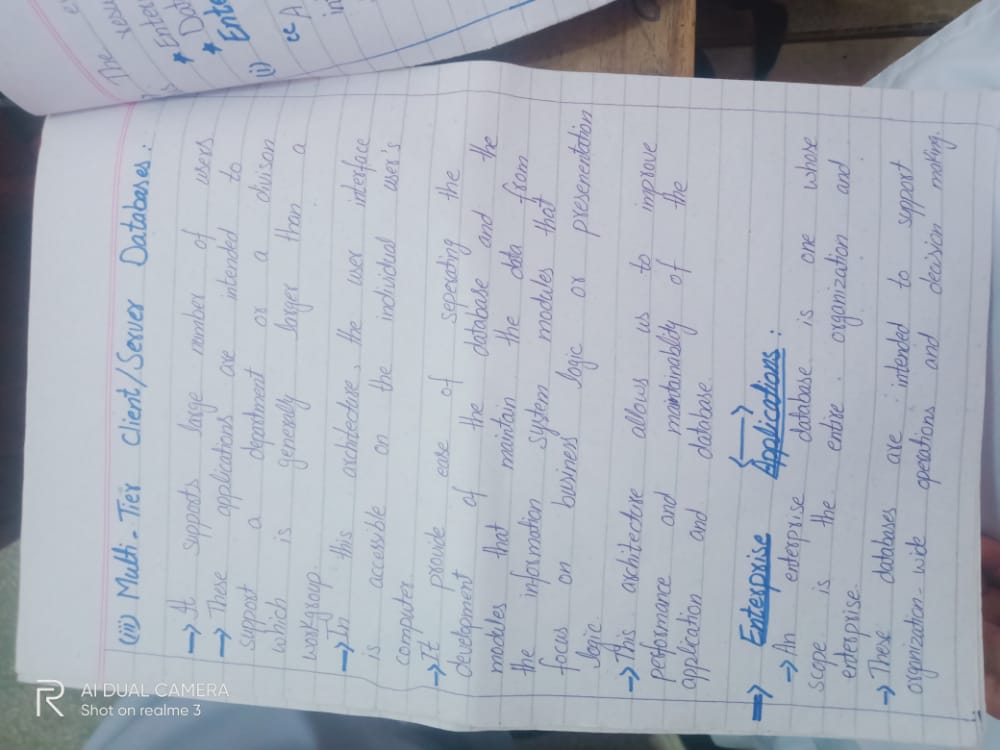 (iii) Multi-Tier Client/Server Databases:
→ It supports large number of users
→ These applications are intended to
support a department or a divison
which is generally larger than a
workgroup.
→ In this architecture, the user interface
is accessible on the individual user's
computer.
→ It provide ease of seperating the
development of the database and the
modules that maintain the data from
the information system modules that
focus on business logic or presenentation
logic
→ This architecture allows us to improve
performance and maintainability of the
application and database.
→ Enterprise Applications:
→ An enterprise database is one whose
scope is the entire organization and
enterprise.
→ These databases are intended to support
organization-wide operations and decision making.
The
Enter
Dat
Ente
(i)
"A
in
R
AI DUAL CAMERA
Shot on realme 3